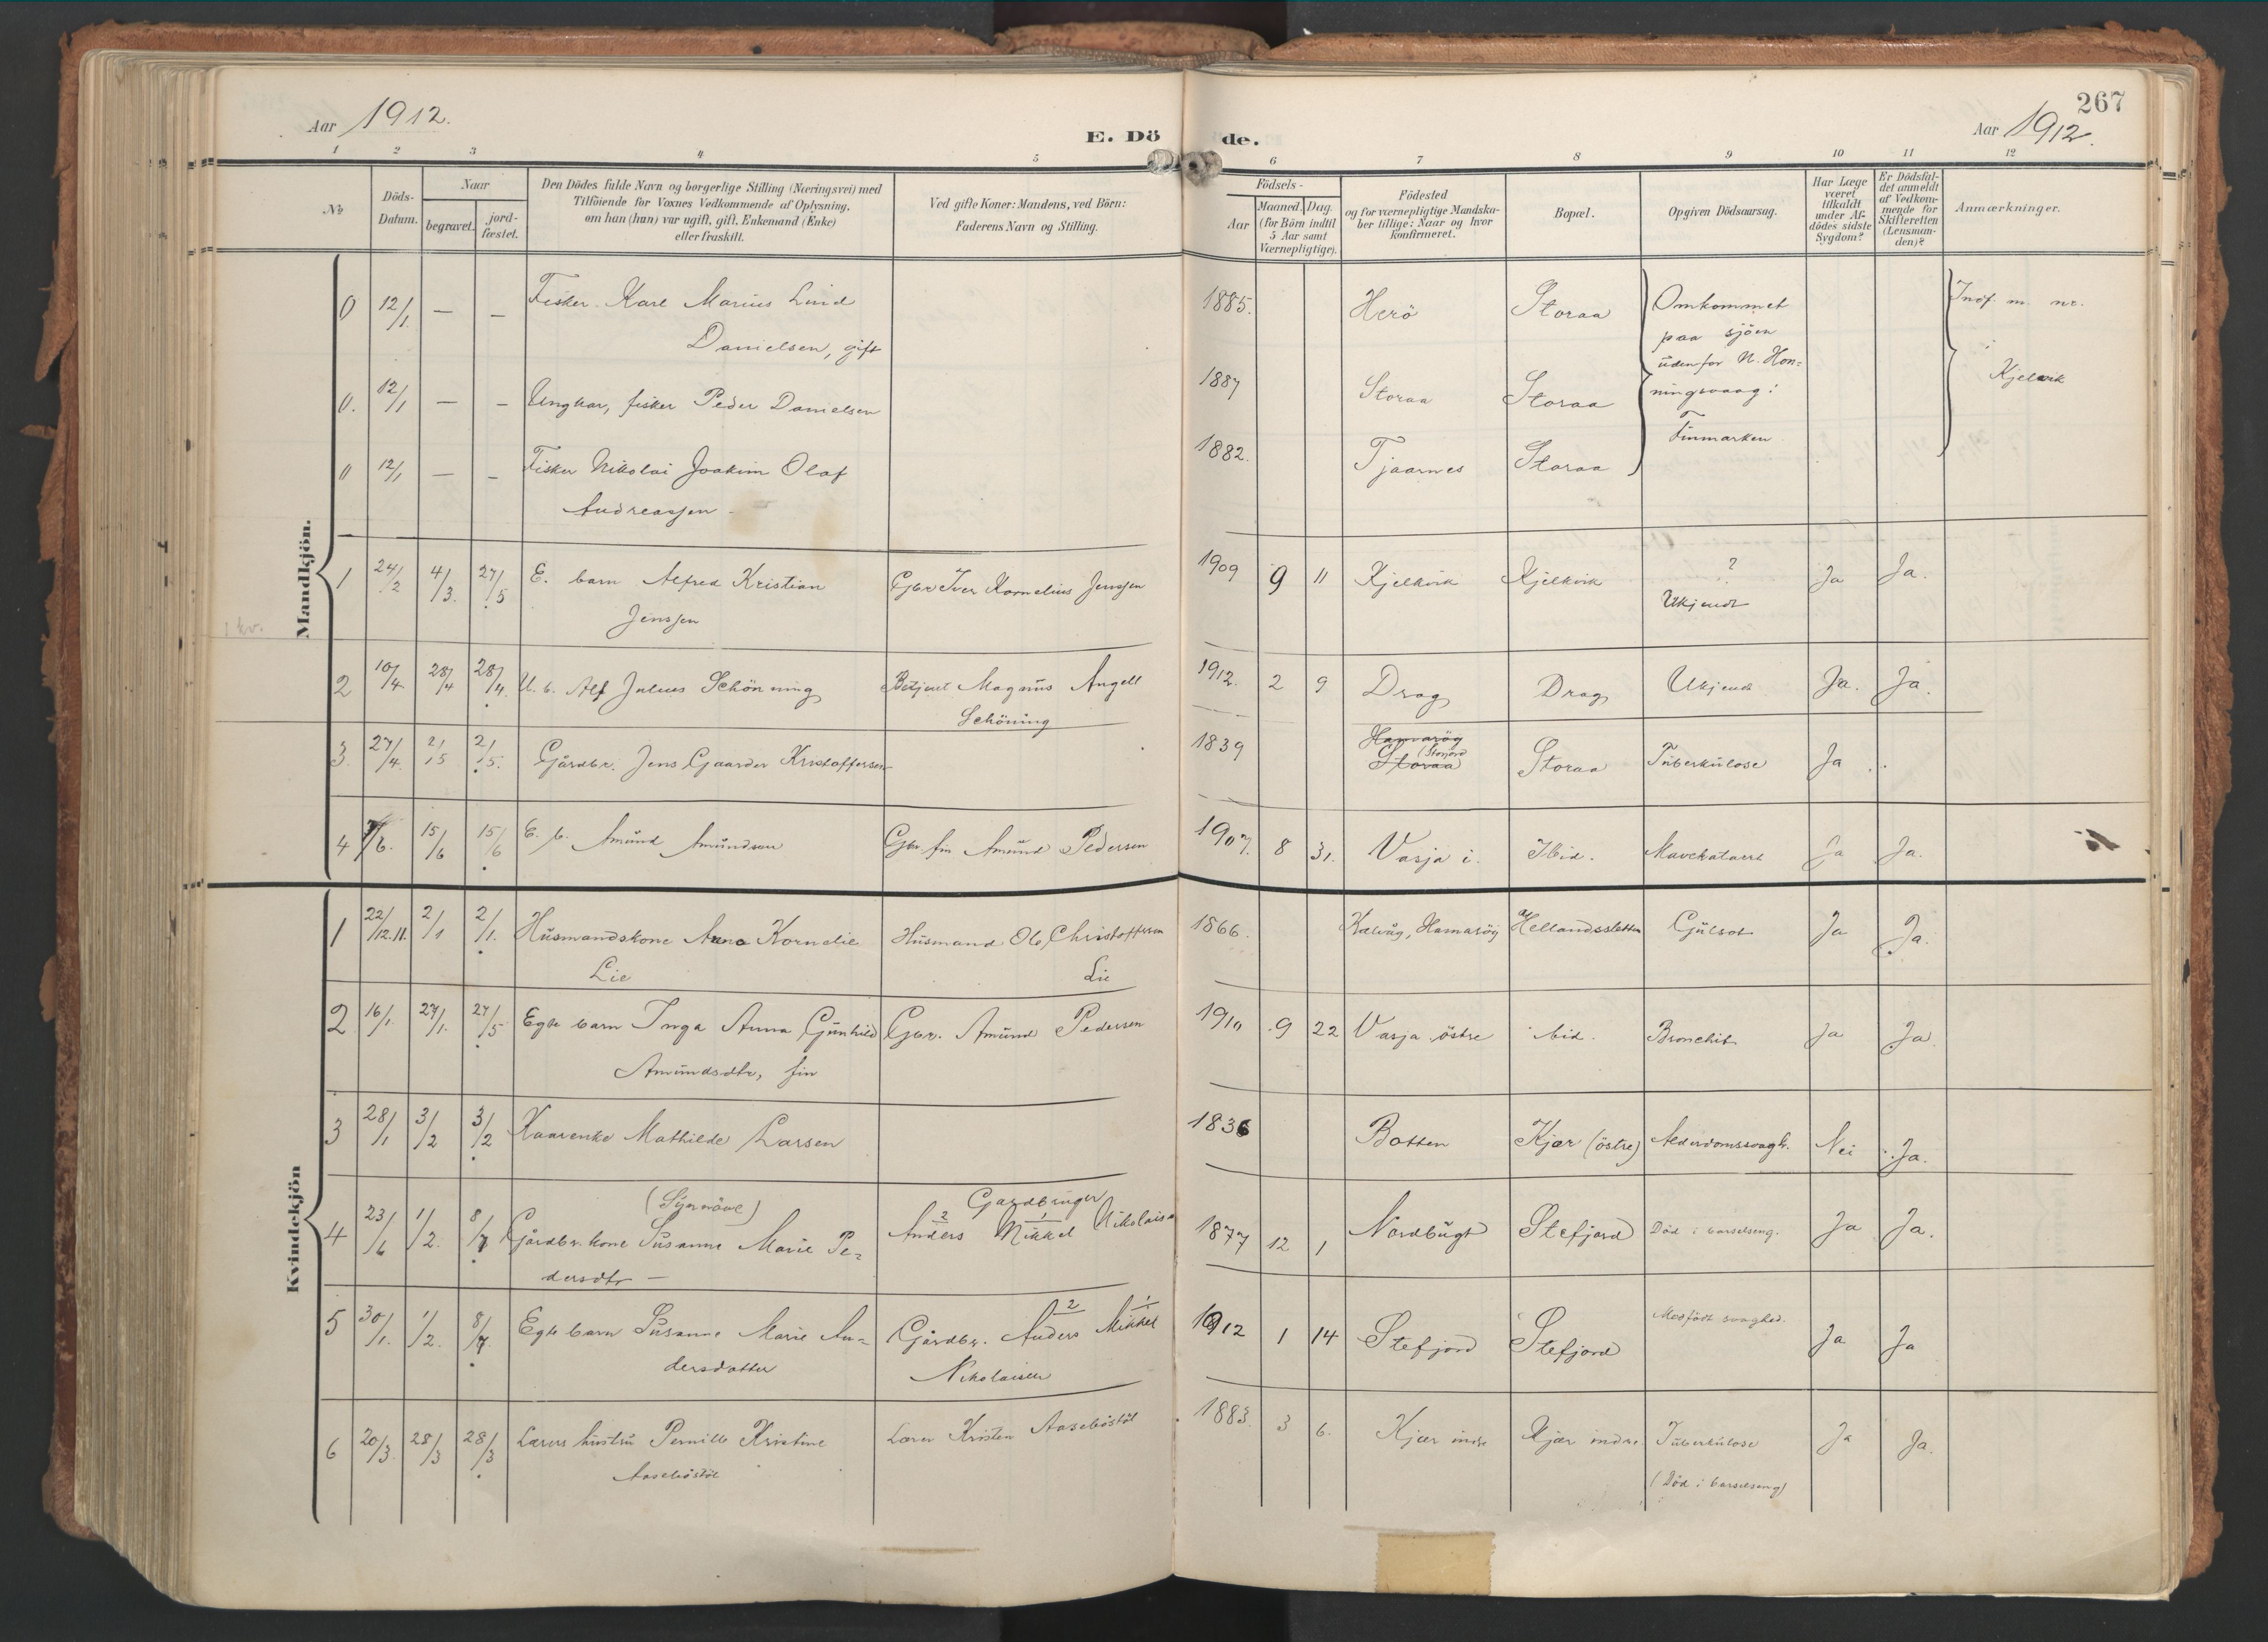 267
Aar 1912.
E. Dö
de.
Aar 1912.
1 2 3 4 5 6 7 8 9 10 11 12
No
Döds-
Datum.
Naar
begravet.
jord-
fæstet.
Den Dödes fulde Navn og borgerlige Stilling (Næringsvei) med
Tilföiende for Voxnes Vedkommende af Oplysning,
om han (hun) var ugift, gift, Enkemand (Enke)
eller fraskilt.
Ved gifte Koner: Mandens, ved Börn:
Faderens Navn og Stilling.
Födsels-
Aar
Maaned. Dag.
(for Börn indtil
5 Aar samt
Værnepligtige).
Födested
og for værnepligtige Mandska-
ber tillige: Naar og hvor
konfirmeret.
Bopæl.
Opgiven Dödsaarsag.
Har Læge
været
tilkaldt
under Af-
dödes sidste
Sygdom?
Er Dödsfal-
det anmeldt
af Vedkom-
mende for
Skifteretten
(Lensman-
den)?
Anmærkninger.
Mandkjön.
0 12/1 — — Fisker Karl Marius Lind
Danielsen, gift
1885. Herö Storaa Omkommet
paa sjöen
udenfor N. Hon=
ningsvaag:
Finmarken
Indf. m. nr.
Kjelvik
0. 12/1 — — Ungkar, fisker Peder Danielsen 1887 Storaa Storaa
0 12/1 — — Fisker Nikolai Joakim Olaf
Andreassen –
1882. Tjaarnes Storaa
1 24/2 4/3. 27/5 E. barn Alfred Kristian
Jenssen
Gbr Iver Kornelius Jenssen 1909 9 11 Kjelkvik Kjelkvik ?
Ukjendt
Ja Ja.
1 kv.
2 10/4 28/4 28/4. U. b. Alf Julius Schönning Betjent Magnus Angell
Schöning
1912. 2 9 Drag Drag Ukjendt Ja. Ja.
3. 27/4. 2/5 2/5. Gårdbr. Jens Gaarder Kristoffersen 1839 Hamaröy
(Storjord
Storaa
Storaa Tuberkulose Ja
4 7/6. 15/6 15/6 E. b. Amund Amundsen Gbr fin Amund Pedersen 1907. 8 31. Vasja i. Ibid. Mavekatarrh Ja Ja.
Kvindekjön
1 22/12.11. 2/1 2/1. Husmandskone Anna Kornelie
Lie
Husmand Ole Christoffersen
Lie
1866. Kalvåg, Hamaröy Hellandssletten Gulsot Ja Ja.
2 16/1. 27/1. 27/5 Egte barn Inga Anna Gunhild
Amundsdtr, fin
Gbr. Amund Pedersen 1910 9 22 Vasja östre ibid. Bronchit Ja Ja.
3 28/1 3/2 3/2 Kaarenke Mathilde Larsen 1836 Botten Kjær (östre) Alderdomssvagh. Nei Ja.
4 23/6 1/2. 8/7 (Synnöve)
Gårdbr. kone Susanne Marie Pe=
dersdtr —
Gardbruger
2 1
Anders Mikkel Nikolaisen
1877 12 1 Nordbugt Stefjord Död i barselseng. Ja Ja.
5 30/1. 1/2. 8/7. Egte barn Susanne Marie An=
dersdatter
2 1
Gårdbr. Anders Mikkel
Nikolaisen
1912 1 14 Stefjord Stefjord Medfödt svaghed. Ja Ja
6 20/3. 28/3 28/3 Lærers hustru Pernille Kristine
Aaseböstöl
Lærer Kristen Aaseböstöl 1883. 3 6. Kjær indre Kjær indre. Tuberkulose
(Död i barselseng)
Ja Ja.